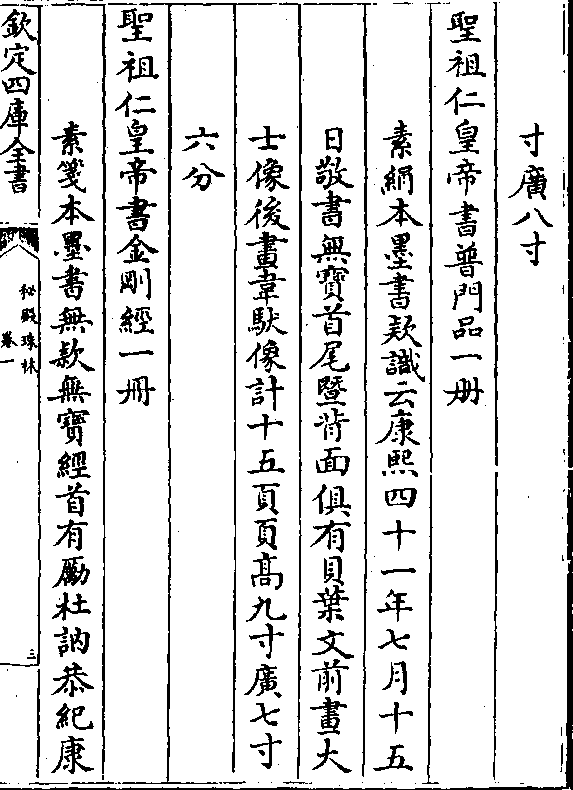 寸廣八寸
聖祖仁皇帝書普門品一册
素絹本墨書款識云康熙四十一年七月十五
日敬書無寶首尾暨背面俱有貝葉文前畫大
士像後畫韋馱像計十五頁頁高九寸廣七寸
六分
聖祖仁皇帝書金剛經一冊
素箋本墨書無款無寶經首有勵杜訥恭紀康
欽定四庫全書
秘殿珠林
卷一
三